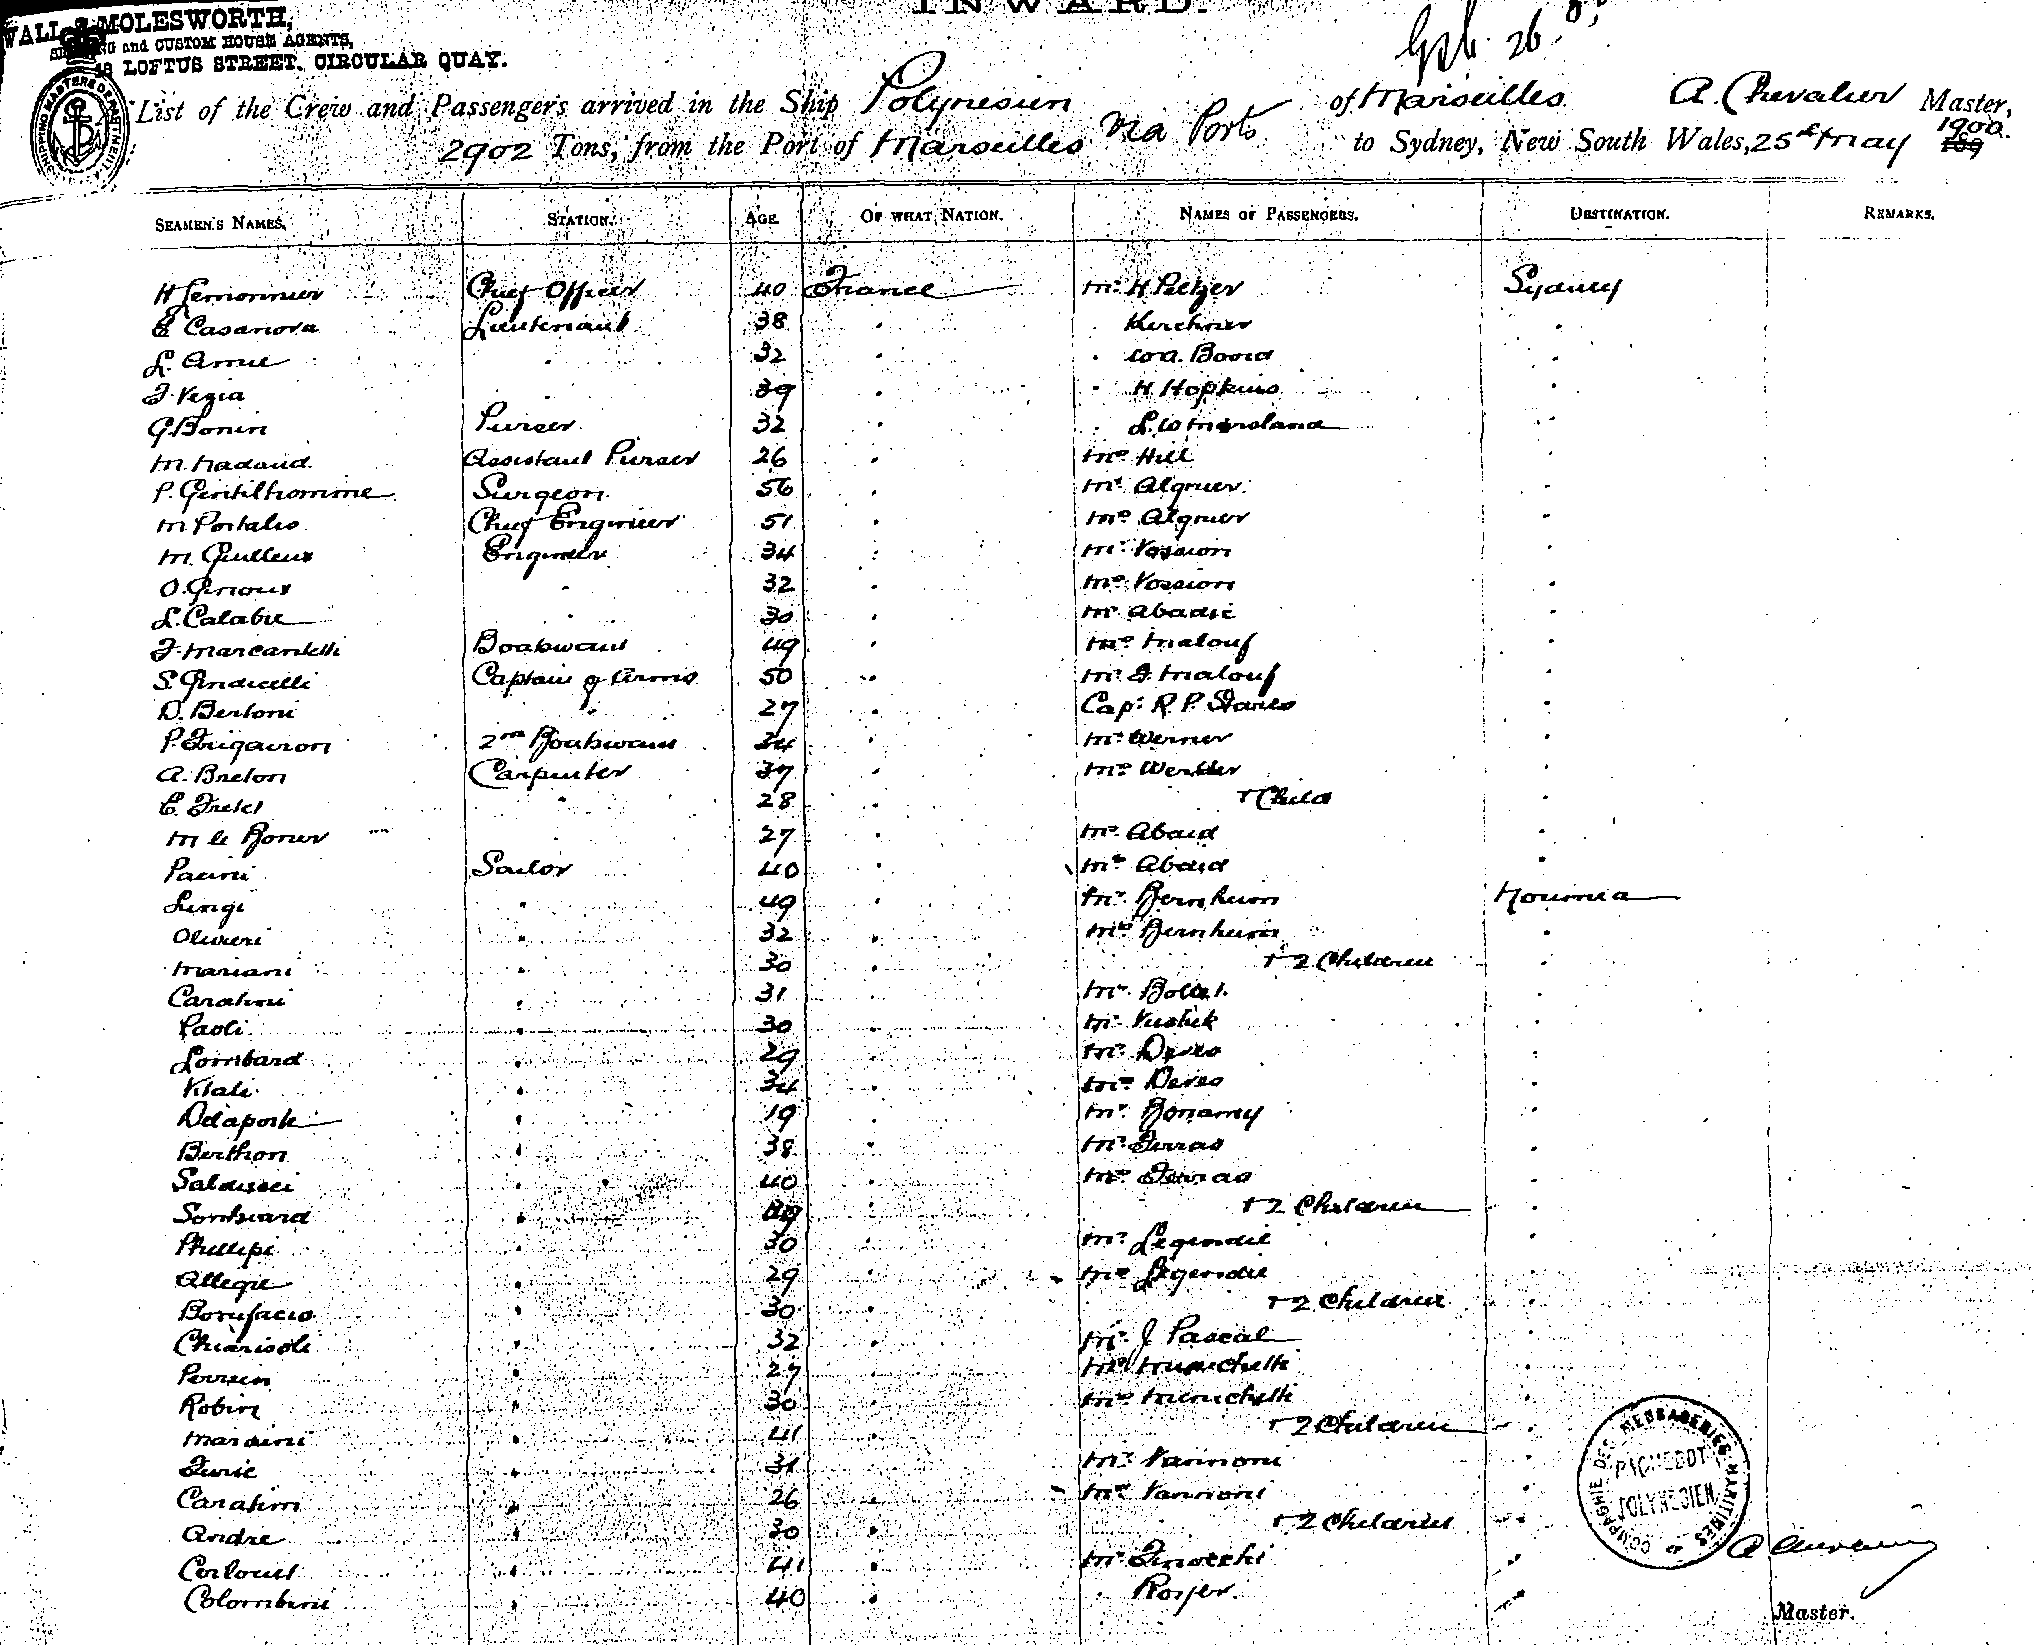 INWARD.
WALL & MOLESWORTH,
SHIPPING and CUSTOM HOUSE AGENTS,
18 LOFTUS STREET, CIRCULAR QUAY.
List of the Crew and Passengers arrived in the Ship Polynesien of Marseilles A. Chevalier Master,
2902 Tons, from the Port of Marseilles via Ports to Sydney, New South Wales, 25th May 1900.
SEAMEN'S NAMES. STATION. AGE OF WHAT NATION. NAMES OF PASSENGERS. DESTINATION. REMARKS.
H Lemonnier Chief Officer 40 France Mr H Peltzer Sydney
E Casanova Lieutenant 38 Kerchner
L. Amie 32 W A. Boord
F. Vezia 39 H Hopkins
G Bonin Purser 32 L. W Marsland
M. Nadaud Assistant Purser 26 Mrs Hill
P. Gentilhomme Surgeon 56 Mr Algnier
M Portalis Chief Engineer 51 Mrs Algnier
M. Guilleux Engineer 34 Mr Vossion
O. Girioux 32 Mrs Vossion
L. Calabre 30 Mr Abadie
F. Marcantelli Boatswain 49 Mrs Malouf
S. Giudicelli Captain of Arms 50 Mr G Malouf
D. Bertoni 27 Capt R. P. Staves
P. Frigairon 2nd Boatswain 34 Mr Werner
A. Breton Carpenter 37 Mrs Werner
E. 28 + Child
M le Borner 27 Mr Abaid
Pacini Sailor 40 Mrs Abaid
Lingi 49 Mr Bernheim Noumea
Olivieri 32 Mrs Bernheim
Mariani 30 + 2 Children
Caratini 31 Mr
Paoli 30 Mr
Lombard 29 Mr Deves
Vitali 34 Mrs Deves
Delaporte 19 Mr Bonamy
Berthon 38 Mr Ferras
Salducci 40 Mrs Ferras
Sombard 49 + 2 Children
Phillipi 30 Mr Legendre
Allegre 29 Mrs Legendre
Bonifacio 30 + 2 Children
Chiarisoli 32 Mr J Pascal
Perrein 27 Mr Munichetti
Robin 30 Mrs Munichetti
Mardini 41 + 2 Children
Furie 31 Mr Vannoni
Caratini 26 Mrs Vannoni
Andre 30 + 2 Children
41 Mr Finocchi
Colombini 40 Roxer
COMPAGNIE DES MESSAGERIES MARITIMES
PAQUEBOT
POLYNESIEN
Master.